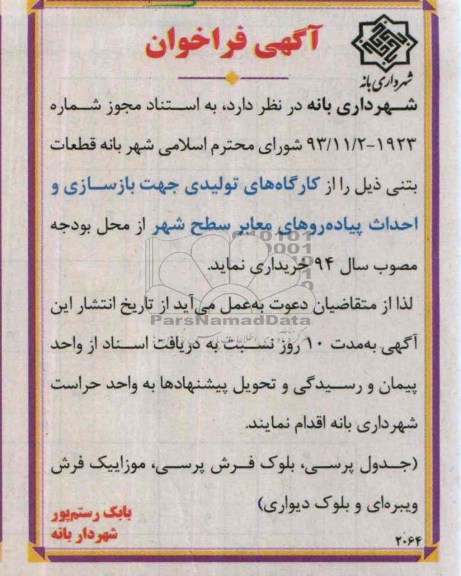 آگهی فراخوان
شهرداری بانه
شهرداری بانه در نظر دارد، به استناد مجوز شماره
۹۳/۱۱/۲-۱۹۲۳ شورای محترم اسلامی شهر بانه قطعات
بتنی ذیل را از کارگاه‌های تولیدی جهت بازسازی و
احداث پیاده‌روهای معابر سطح شهر از محل بودجه
مصوب سال ۹۴ خریداری نماید.
لذا از متقاضیان دعوت به‌عمل می‌آید از تاریخ انتشار این
ParsNamadData
آگهی به‌مدت ۱۰ روز نسبت به دریافت اسناد از واحد
پیمان و رسیدگی و تحویل پیشنهادها به واحد حراست
شهرداری بانه اقدام نمایند.
(جدول پرسی، بلوک فرش پرسی، موزاییک فرش
ویبره‌ای و بلوک دیواری)
بابک رستم‌پور
شهردار بانه
۲۰۶۴